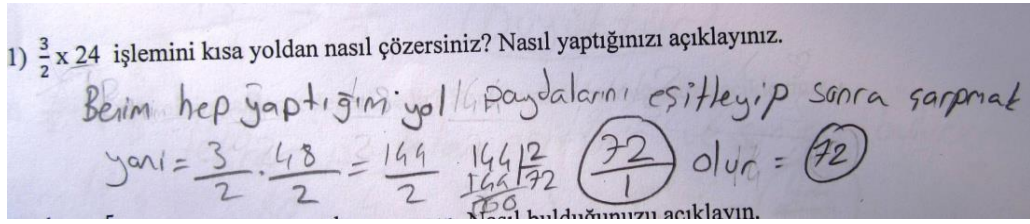 1) 3/2 x 24 işlemini kısa yoldan nasıl çözersiniz? Nasıl yaptığınızı açıklayınız.
Benim hep yaptığım yol paydalarını eşitleyip sonra çarpmak
yani = 3/2 . 48/2 = 144/2 144 | 2 72/1 olur = 72
144 | 72
000
Nasıl bulduğunuzu açıklayın.